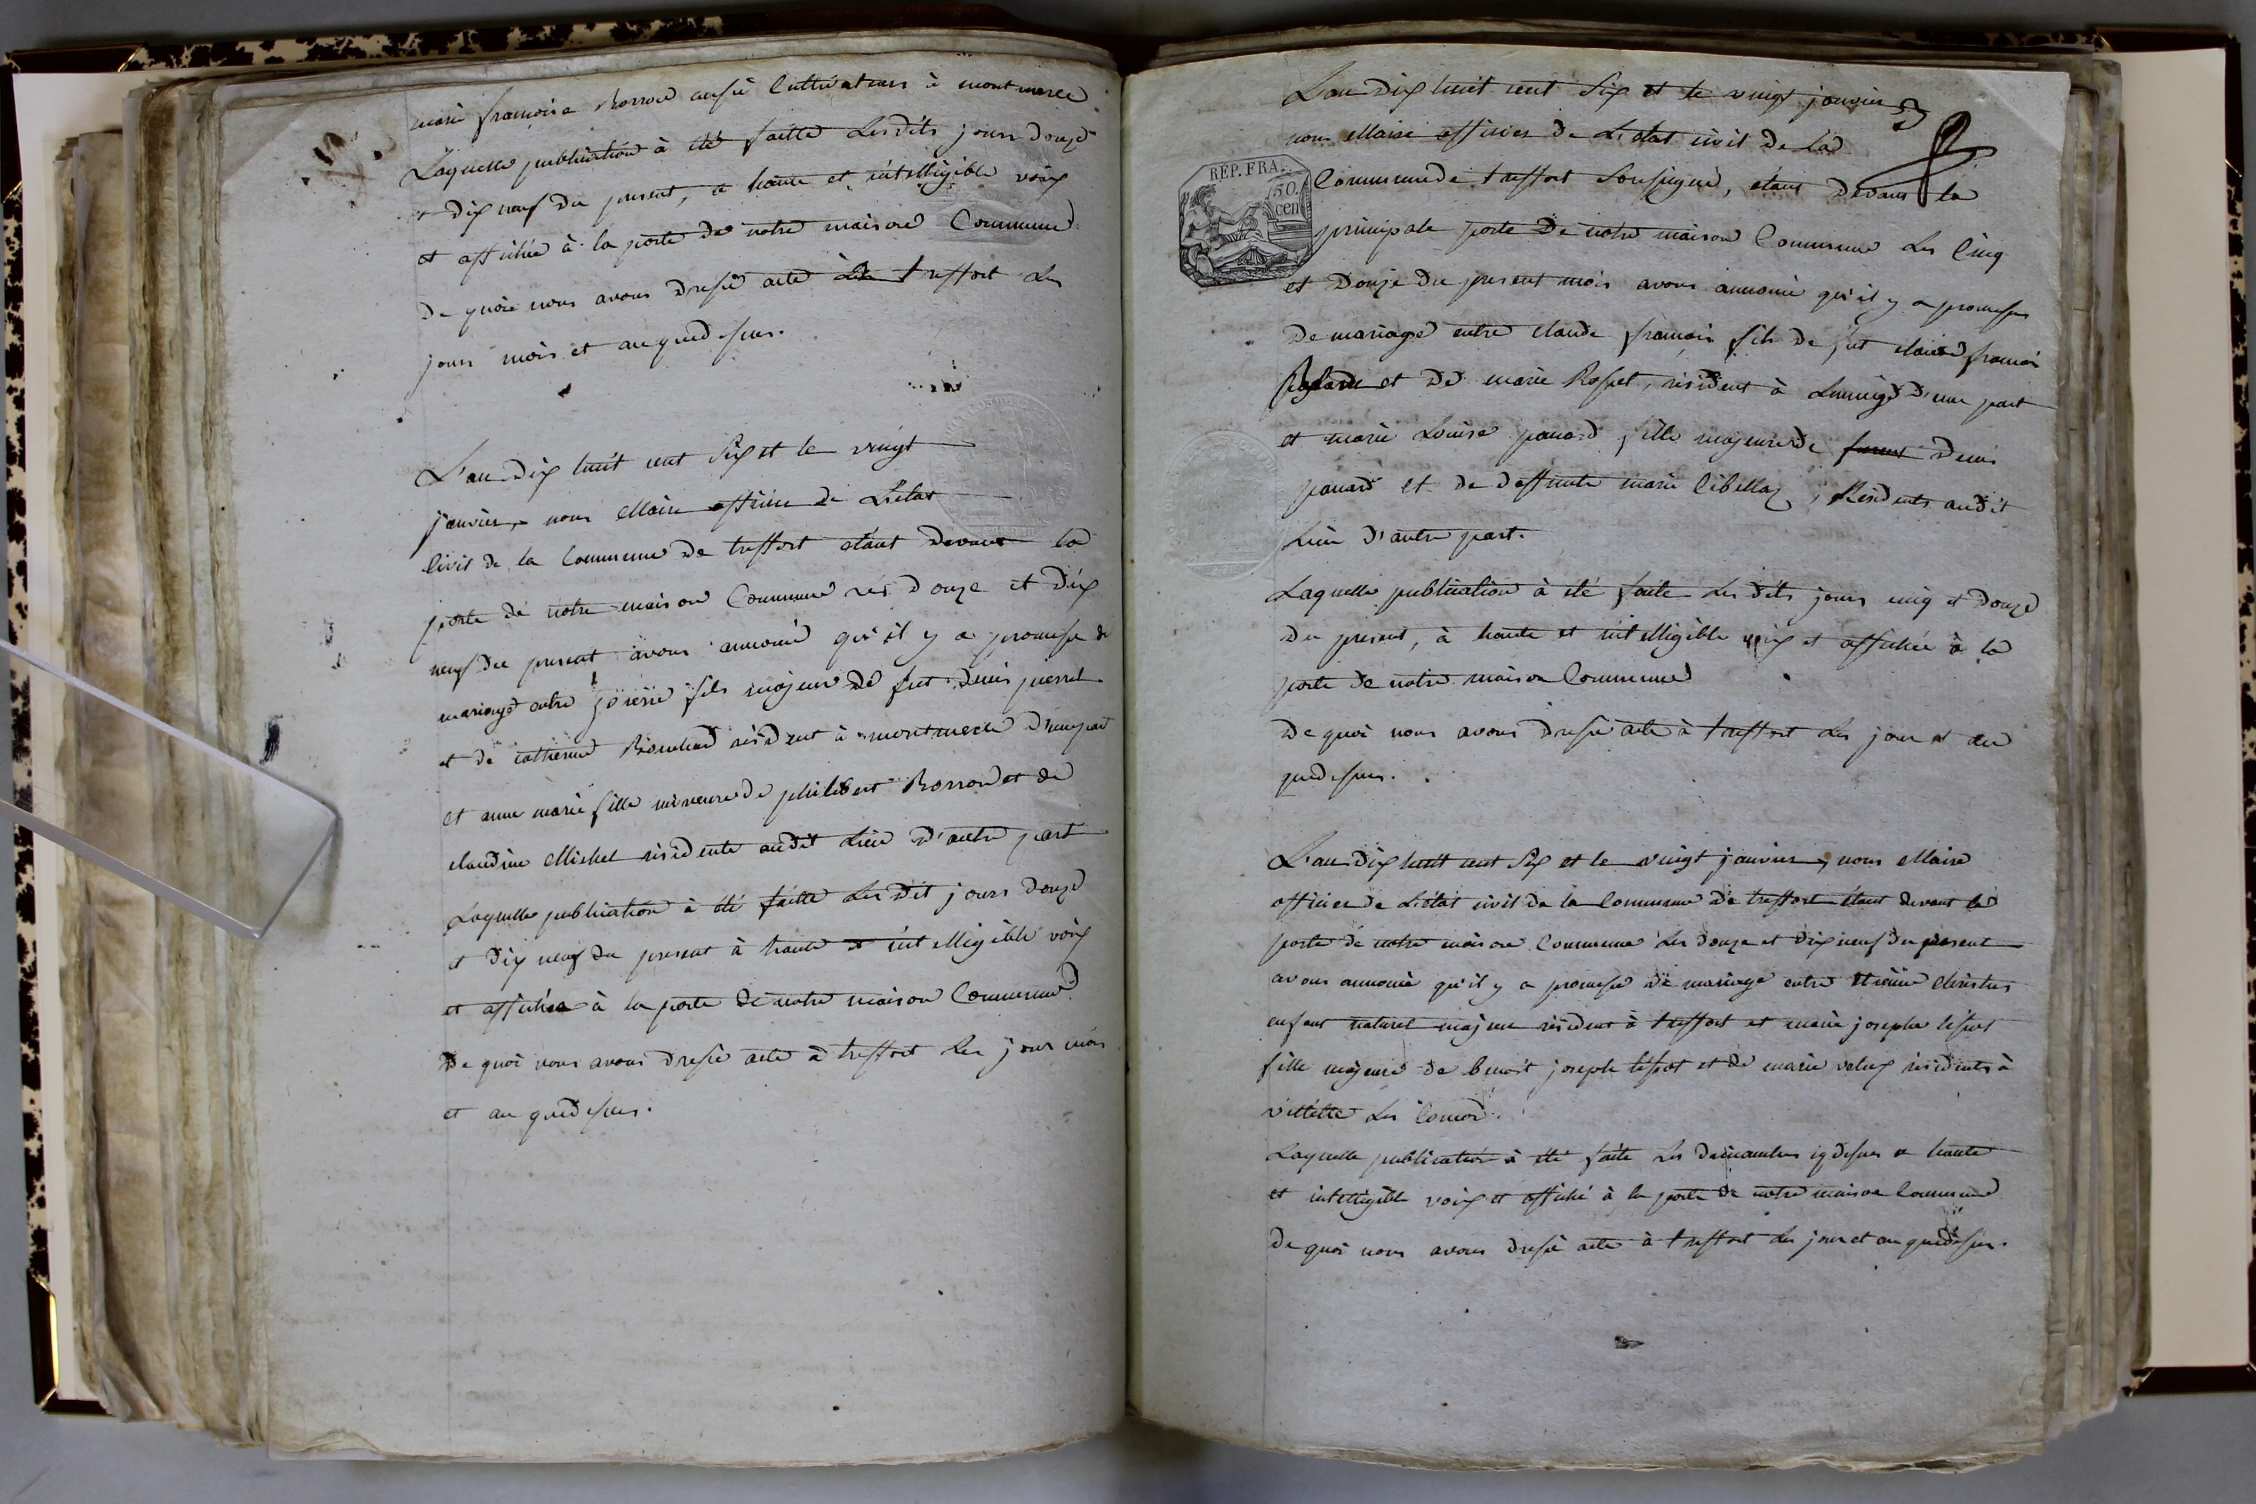 marie francoise Borron aussi Cultivateurs à montmerle
Laquelle publication à été faitte Les dits jours douze
et dix neuf du present, a haute et intelligible voix
et affichée à la porte de notre maison Commune
De quoi nous avons dressé acte à treffort Les
jours mois et an quedessus.
L'an dix huit cent six et le vingt
janvier, nous Maire officier de L'etat
Civil de la Commune de treffort etant devant la
porte de notre maison Commune les douze et dix
neuf du present avons annoncé qu'il y a promesse de
mariage entre fils majeur de fut denis perret
et de catherine résident à montmerle d'une part
et anne marie fille mineure de philibert Borron et de
claudine Michel residente audit Lieu d'autre part
Laquelle publication à été faitte Les dit jours douze
et dix neuf du present à haute et intelligible voix
et affichée à la porte de notre maison Commune
De quoi nous avons dressé acte à treffort Les jour mois
et an quedessus.
L'an dix huit cent six et le vingt janvier
nous Maire officier de L'etat civil de la
REP. FRA.
50. cen
Commune de treffort soussigné, etant devant la
principale porte de notre maison Commune Les Cinq
et Douze du present mois avons annoncé qu'il y a promesse
De mariage entre claude francois fils de fut claude francois
et de marie Rosset, résident à d'une part
et marie Louise panard fille majeure de denis
panard et de deffunte marie, Residents audit
Lieu d'autre part.
Laquelle publication à été faite Les dits jours cinq et douze
Du present, à haute et intelligible voix et affichée à la
porte de notre maison Commune
De quoi nous avons dressé acte à treffort Les jour et an
quedessus.
L'an dix huit cent six et le vingt janvier, nous Maire
officier de L'état civil de la Commune de treffort étant devant la
porte de notre maison Commune Les douze et dix neuf du present
avons annoncé qu'il y a promesse de mariage entre etienne
enfant naturel majeur résident à treffort et marie josephe
fille majeure de benoit joseph et de marie résidents à
villette Les
Laquelle publication à été faite Les a haute
et intelligible voix et affiché à la porte de notre maison Commune
De quoi nous avons dressé acte à treffort Les jour et an quedessus.